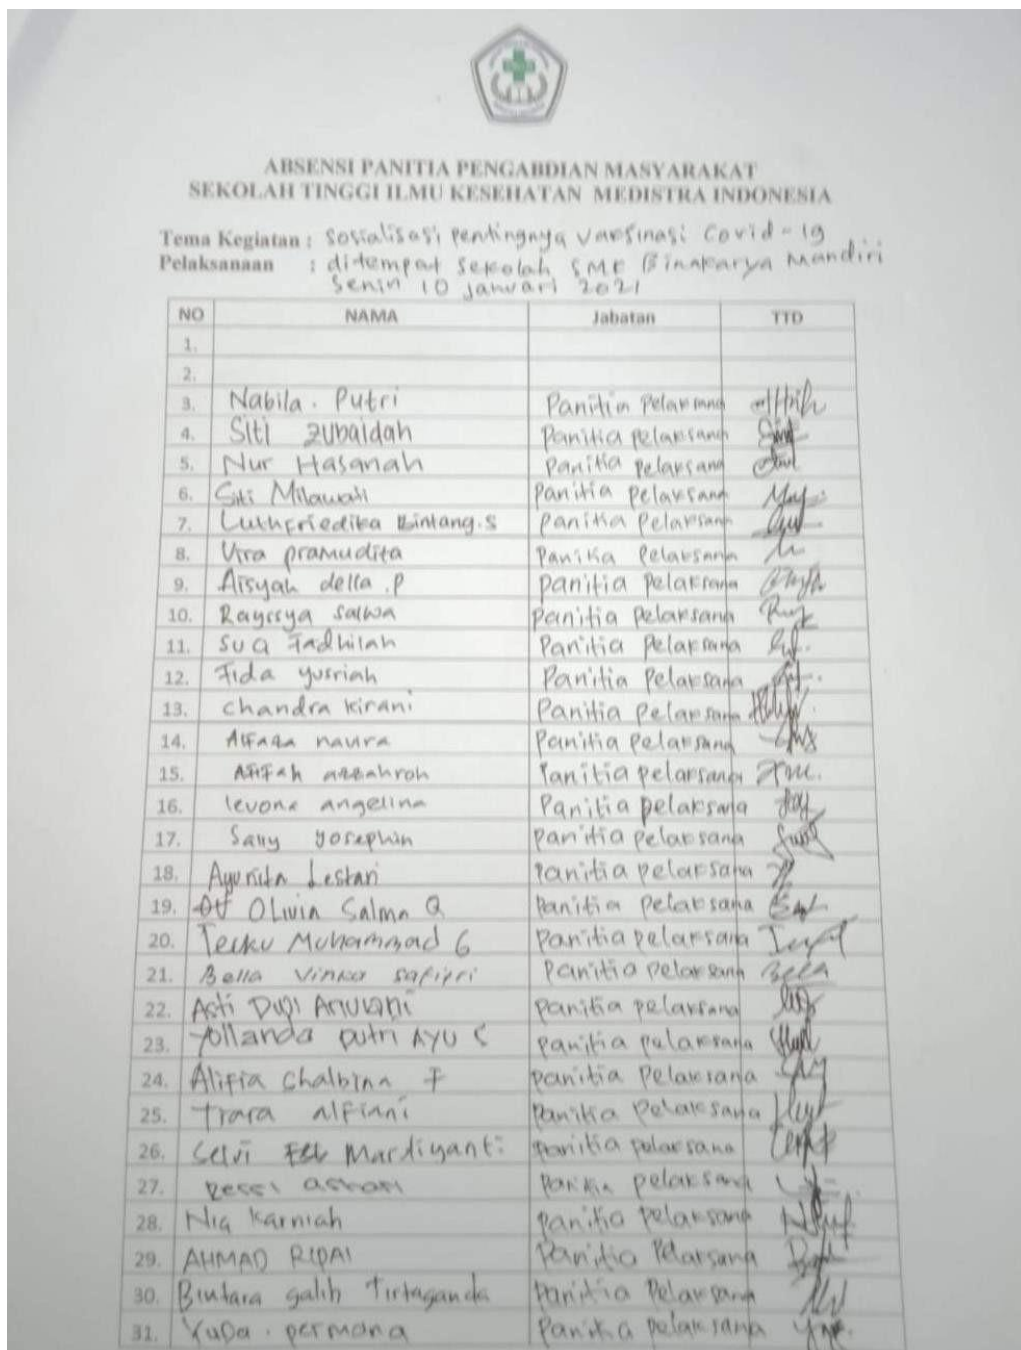 ABSENSI PANITIA PENGABDIAN MASYARAKAT
SEKOLAH TINGGI ILMU KESEHATAN MEDISTRA INDONESIA
Tema Kegiatan : Sosialisasi pentingnya vaksinasi Covid-19
Pelaksanaan : ditempat sekolah SMK Binakarya Mandiri
Senin 10 januari 2021
NO NAMA Jabatan TTD
1.
2.
3. Nabila . Putri Panitia Pelaksana
4. Siti Zubaidah Panitia pelaksana
5. Nur Hasanah Panitia pelaksana
6. Siti Milawati Panitia pelaksana
7. Luthfriedika Bintang.S Panitia Pelaksana
8. Vira pramudita Panitia Pelaksana
9. Aisyah della .P Panitia Pelaksana
10. Rayssya salwa Panitia pelaksana
11. Fadhilah Panitia Pelaksana
12. Fida yusriah Panitia Pelaksana
13. Chandra kirani Panitia Pelaksana
14. naura Panitia Pelaksana
15. Afifah azzahroh Panitia pelaksana
16. levona angelina Panitia pelaksana
17. Sany yosephin Panitia pelaksana
18. Ayunita Lestari Panitia pelaksana
19. Olivia Salma Q Panitia pelaksana
20. Teuku Muhammad G Panitia pelaksana
21. Bella Vinka safitri Panitia Pelaksana Bella
22. Asti Dwi Panitia pelaksana
23. Yollanda putri AYU S Panitia pelaksana
24. Alifia Chalbina F Panitia Pelaksana
25. Trara alfiani Panitia Pelaksana
26. Selvi Mardiyanti Panitia pelaksana
27. Pessi Panitia pelaksana
28. Nia Karniah Panitia Pelaksana
29. AHMAD RIPAI Panitia Pelaksana
30. Bintara galih Tirtaganda Panitia Pelaksana
31. Yuda . permana Panitia pelaksana